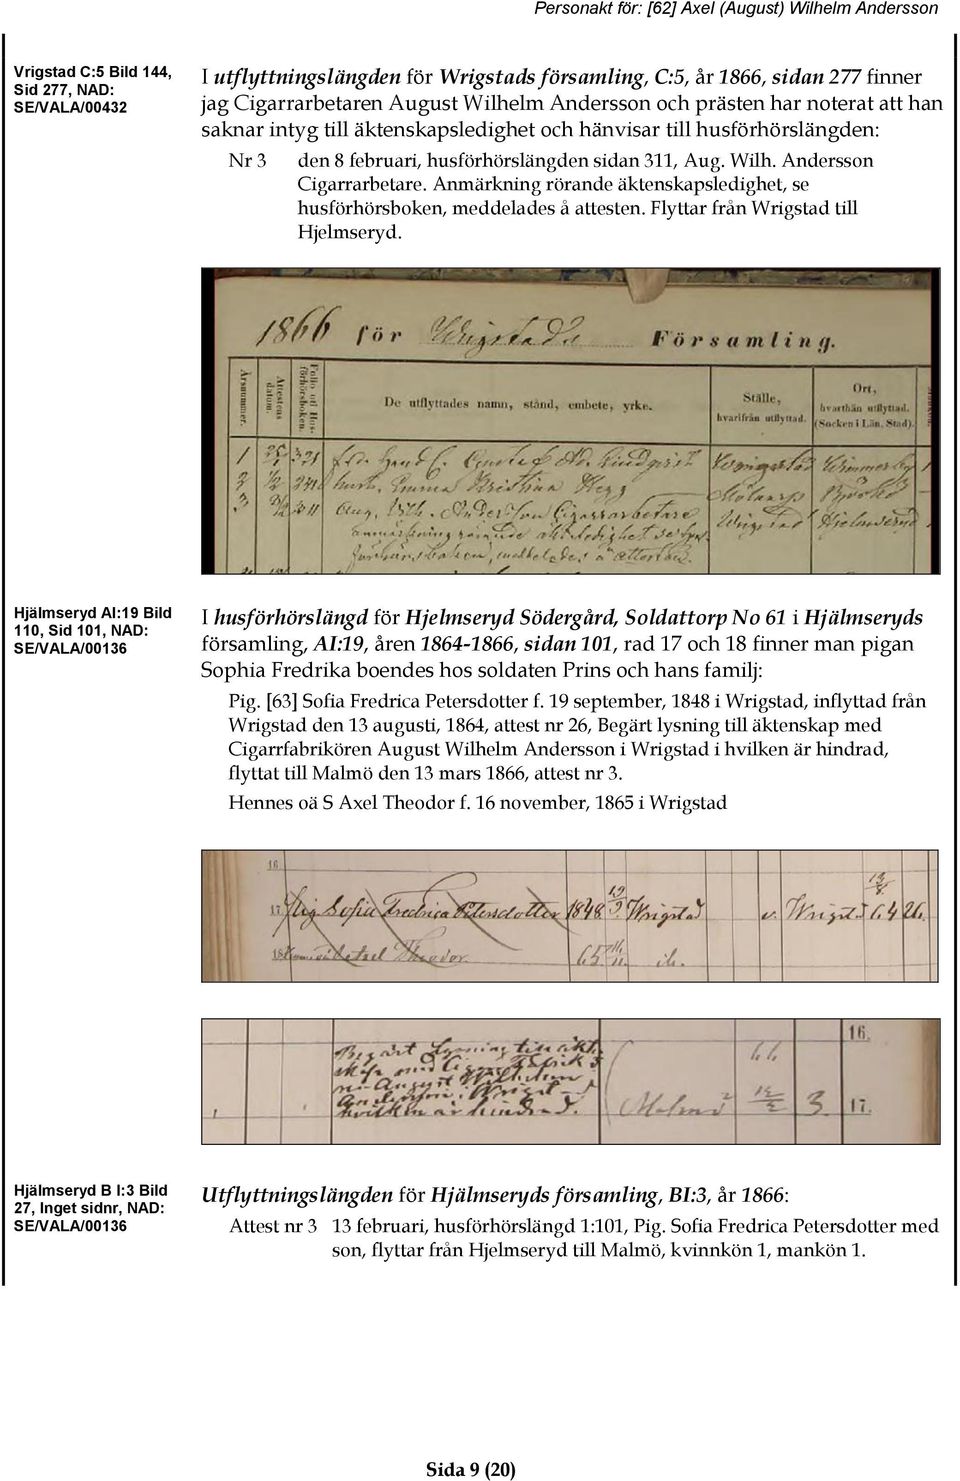 Personakt för: [62] Axel (August) Wilhelm Andersson
Vrigstad C:5 Bild 144,
Sid 277, NAD:
SE/VALA/00432
I utflyttningslängden för Wrigstads församling, C:5, år 1866, sidan 277 finner
jag Cigarrarbetaren August Wilhelm Andersson och prästen har noterat att han
saknar intyg till äktenskapsledighet och hänvisar till husförhörslängden:
Nr 3 den 8 februari, husförhörslängden sidan 311, Aug. Wilh. Andersson
Cigarrarbetare. Anmärkning rörande äktenskapsledighet, se
husförhörsboken, meddelades å attesten. Flyttar från Wrigstad till
Hjelmseryd.
1866 för Wrigstads Församling.
Årsnummer.
Attestens datum.
Folio uti Husförhörsboken.
De utflyttades namn, stånd, embete, yrke.
Ställe,
hvarifrån utflyttad.
Ort,
hvarthän utflyttad.
(Socken i Län, Stad).
1 321 Gustaf Ad. Lindqvist Wrigstad Wimmerby
2 1/2 Emma Kristina
3 311 Aug. Wilh. Andersson Cigarrarbetare Wrigstad Hjelmseryd
anmärkning rörande äktenskapsledighet se hus-
förhörsboken, meddelades å attesten.
Hjälmseryd AI:19 Bild
110, Sid 101, NAD:
SE/VALA/00136
I husförhörslängd för Hjelmseryd Södergård, Soldattorp No 61 i Hjälmseryds
församling, AI:19, åren 1864-1866, sidan 101, rad 17 och 18 finner man pigan
Sophia Fredrika boendes hos soldaten Prins och hans familj:
Pig. [63] Sofia Fredrica Petersdotter f. 19 september, 1848 i Wrigstad, inflyttad från
Wrigstad den 13 augusti, 1864, attest nr 26, Begärt lysning till äktenskap med
Cigarrfabrikören August Wilhelm Andersson i Wrigstad i hvilken är hindrad,
flyttat till Malmö den 13 mars 1866, attest nr 3.
Hennes oä S Axel Theodor f. 16 november, 1865 i Wrigstad
16.
17. Pig. Sofia Fredrica Petersdotter 1848. 19/9. Wrigstad v. Wrigst. 13/8. 64 26.
18. Axel Theodor. 65 16/11. ib.
16.
Begärt lysning till äkten-
skap med Cigarrfabrikö-
ren August Wilhelm
Andersson i Wrigstad
hvilken är hindrad.
Malmö 66 3. 17.
Hjälmseryd B I:3 Bild
27, Inget sidnr, NAD:
SE/VALA/00136
Utflyttningslängden för Hjälmseryds församling, BI:3, år 1866:
Attest nr 3 13 februari, husförhörslängd 1:101, Pig. Sofia Fredrica Petersdotter med
son, flyttar från Hjelmseryd till Malmö, kvinnkön 1, mankön 1.
Sida 9 (20)